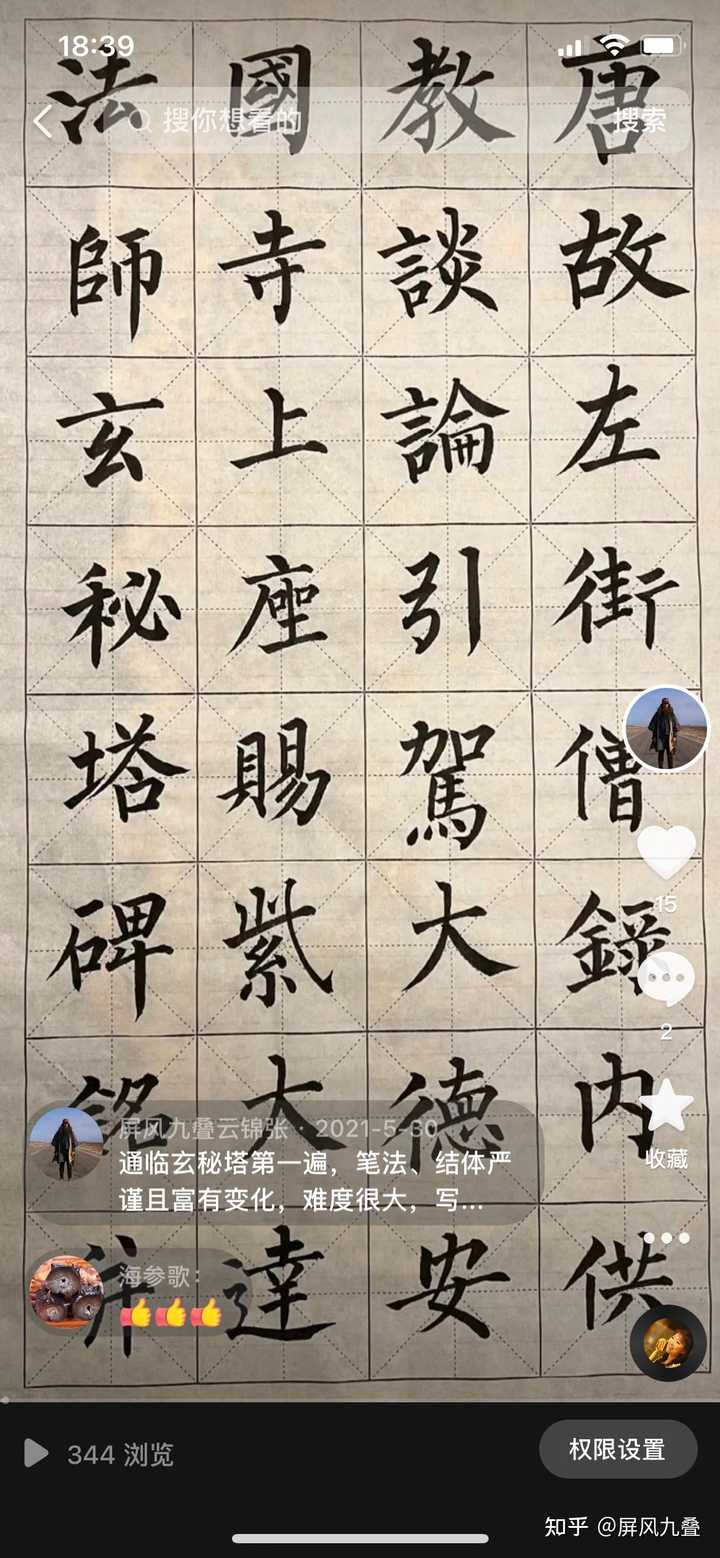 18:39
搜你想看的
搜索
唐故左街僧錄内供
教談論引駕大德安
國寺上座賜紫大達
法師玄秘塔碑銘并
15
2
收藏
屏风九叠云锦张 · 2021-5-30
通临玄秘塔第一遍，笔法、结体严
谨且富有变化，难度很大，写...
海参歌：
👍👍👍
344 浏览
权限设置
知乎 @屏风九叠